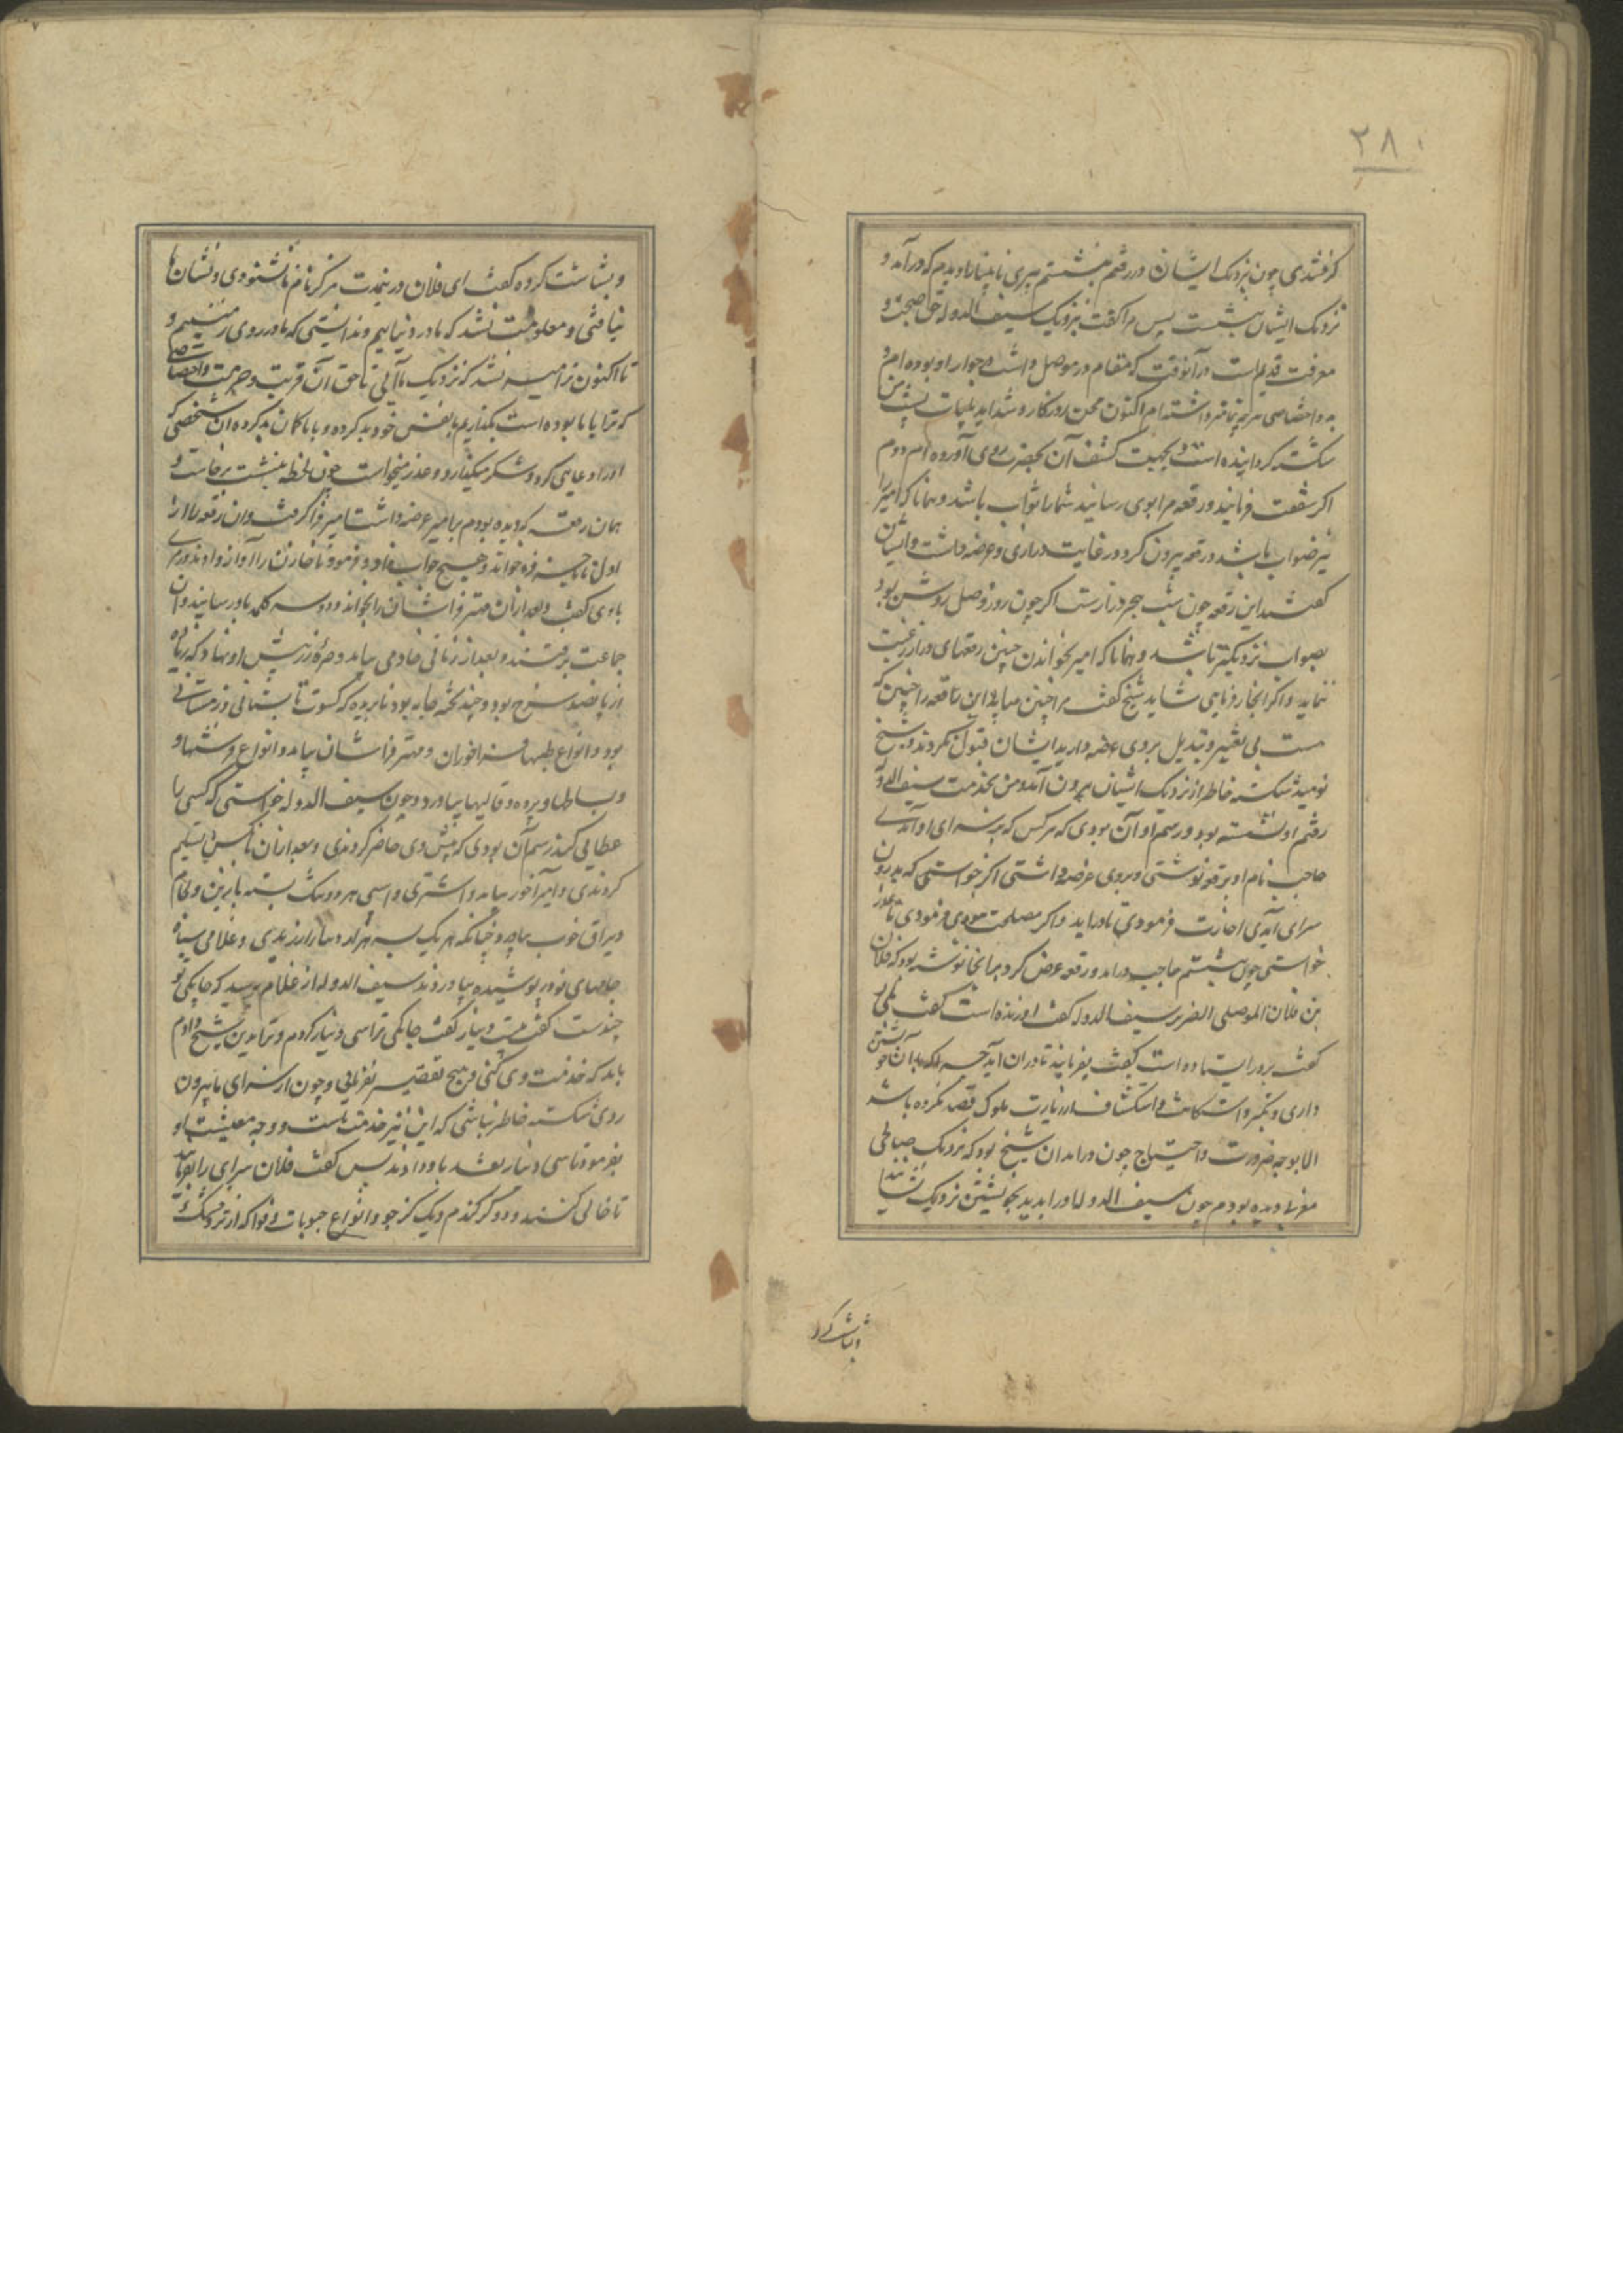 ۲۸۰
کرفتندی چون بنزدیک ایشان در رفتم و بنشستم پیری نابینا را دیدم که درآمد و
نزدیک ایشان بنشست پس مرا کفت بنزدیک سیف الدوله حق صحبت و
معرفت قدیم است در آنوقت که مقام در موصل داشت در جوار او بوده ام و
بدو اختصاصی هر چه تمامتر داشته ام اکنون محن روزکار و شداید بلیات پشت من
شکسته کردانیده است و بجهت کشف آن بحضرت وی روی آورده ام
اکر شفقت فرمایند و رقعه مرا بوی رسانید شما را ثواب باشد و همانا که امیر را
نیز صواب باشد و رقعه بیرون کرد در غایت درازی و عرضه داشت و ایشان
کفتند این رقعه چون شب هجر درازست اکر چون روز وصل روشن بود
بصواب نزدیکتر باشد و همانا که امیر بخواندن چنین رقعهای دراز رغبت
ننماید و اکر ایجاز فرمایی شاید شیخ کفت مرا چنین میباید این رقعه را چنین که
هست بی تغییر و تبدیل بر وی عرضه دارید ایشان قبول نکردند و شیخ
نومید و شکسته خاطر از نزدیک ایشان بیرون آمد و من بخدمت سیف الدوله
رفتم او نشسته بود و رسم او آن بودی که هر کس که بدر سرای او آمدی
حاجب نام او بر رقعه نوشتی و بروی عرضه داشتی اکر خواستی که بدرون
سرای آیدی اجازت فرمودی تا درآید و اکر مصلحت نبودی فرمودی تا عذر
خواستی چون بنشستم حاجب درآمد و رقعه عرض کرد و بدانجا نوشته بود که فلان
بن فلان الموصلی الضریر سیف الدوله کفت او زنده است کفت بلی
کفت بر در ایستاده است کفت بفرمایید تا در آید
داری و تکبر و استنکاف از زیارت ملوک قصد نکرده باشد
الا بوجه ضرورت و احتیاج چون درآمد آن شیخ بود که نزدیک
دیده بودم چون سیف الدوله او را بدید بخویشتن نزدیک بنشانید
و بشاشت کرد
و بشاشت کرده کفت ای فلان درینمدت هرکز نام ما نشنودی و نشان ما
نیافتی و معلومت نشد که ما در دنیاییم و ندانستی که ما در روی زمینیم و
تا اکنون ترا میسر نشد که نزدیک ما آیی تا حق آن قربت و حرمت و اختصاصی
که ترا با ما بوده است بکذاریم بنفس خود بد کرده و با ما کمان بد کرده آن شخص
او را دعایی کرد و شکر میکذارد و عذر میخواست چون لحظه بنشست برخاست و
همان رقعه که دیده بودم بر امیر عرضه داشت امیر فرا کرفت و آن رقعه را از
اول تا آخر فرو خواند و هیچ جواب نداد و فرمود تا خازن را آواز دادند و رمزی
با وی کفت و بعد از آن مهتر فراشان را بخواند و دو سه کلمه باو رسانید و آن
جماعت برفتند و بعد از زمانی خادمی بیامد و صره زر پیش او نهاد که زیاده
از پانصد سرخ بود و چند تخته جامه بود نابریده که کسوت تابستانی و زمستانی
بود و انواع طیبها و مهتر فراشان بیامد و انواع فرشها و
و بساطها و پرده و قالیها بیاورد و چون سیف الدوله خواستی که کسی را
عطایی کند رسم آن بودی که پیش وی حاضر کردندی و بعد از آن بآنکس تسلیم
کردندی و امیر آخور بیامد و اشتری و اسبی هر دو تنک بسته با زین و لجام
و یراق خوب بیاورد چنانکه هر یک بسه هزار دینار ارزیدی و غلامی سیاه
جامهای نو در پوشیده بیاوردند سیف الدوله از غلام پرسید که جامکی تو
چندست کفت بیست دینار کفت جامکی ترا سی دینار کردم و ترا بدین شیخ دادم
باید که خدمت وی کنی و هیچ تقصیر نفرمایی و چون از سرای ما بیرون
روی شکسته خاطر نباشی که این نیز خدمت ماست و وجه معیشت او
بفرمود تا سی دینار نقد باو دادند پس کفت فلان سرای را بفرمایید
تا خالی کنند و دو کر کندم و یک کر جو و انواع حبوبات و فواکه از تر و خشک